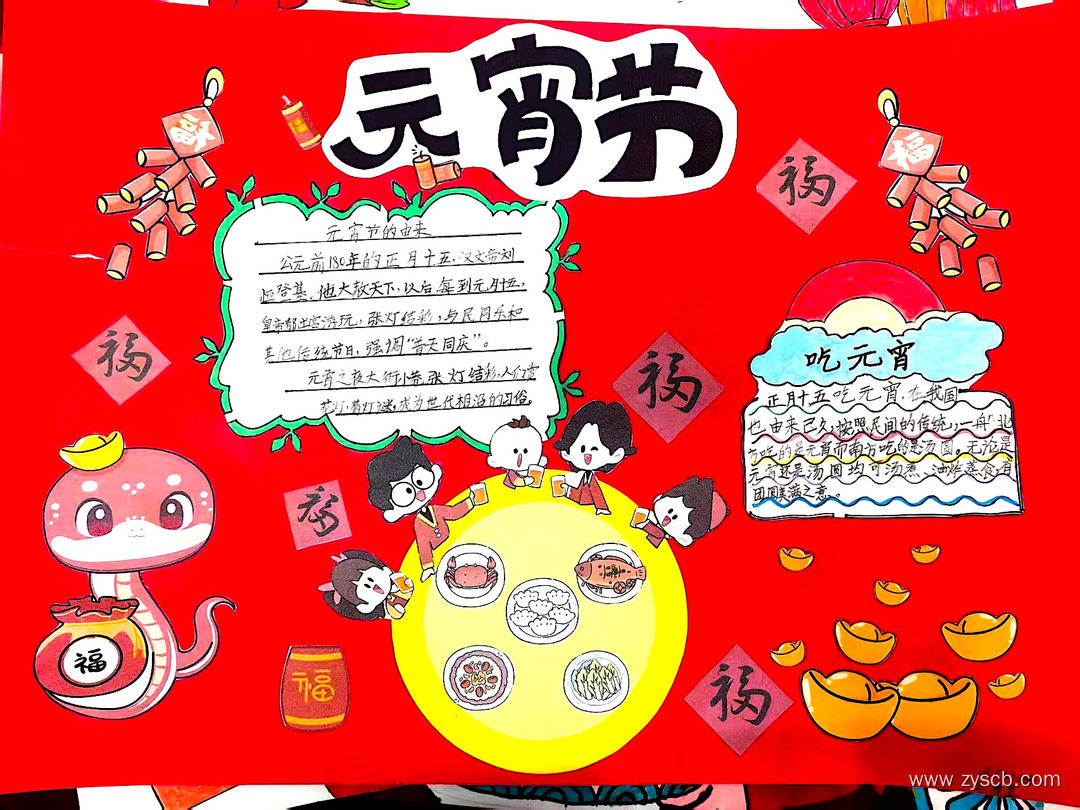 元宵节
福
福
福
元宵节的由来
公元前180年的正月十五,汉文帝刘
恒登基,他大赦天下,以后每到元月十五,
皇帝都出宫游玩,张灯结彩,与民同乐和
其他传统节日,强调"普天同庆"。
元宵之夜大街小巷张灯结彩,人们赏
花灯,猜灯谜,成为世代相沿的习俗。
吃元宵
正月十五吃元宵,在我国
也由来已久,按照民间的传统,一般"北
方吃的是元宵而南方吃的是汤圆。无论是
元宵还是汤圆均可汤煮、油炸蒸食,有
团圆美满之意。
福
福
福
福
福
福
www.zyscb.com